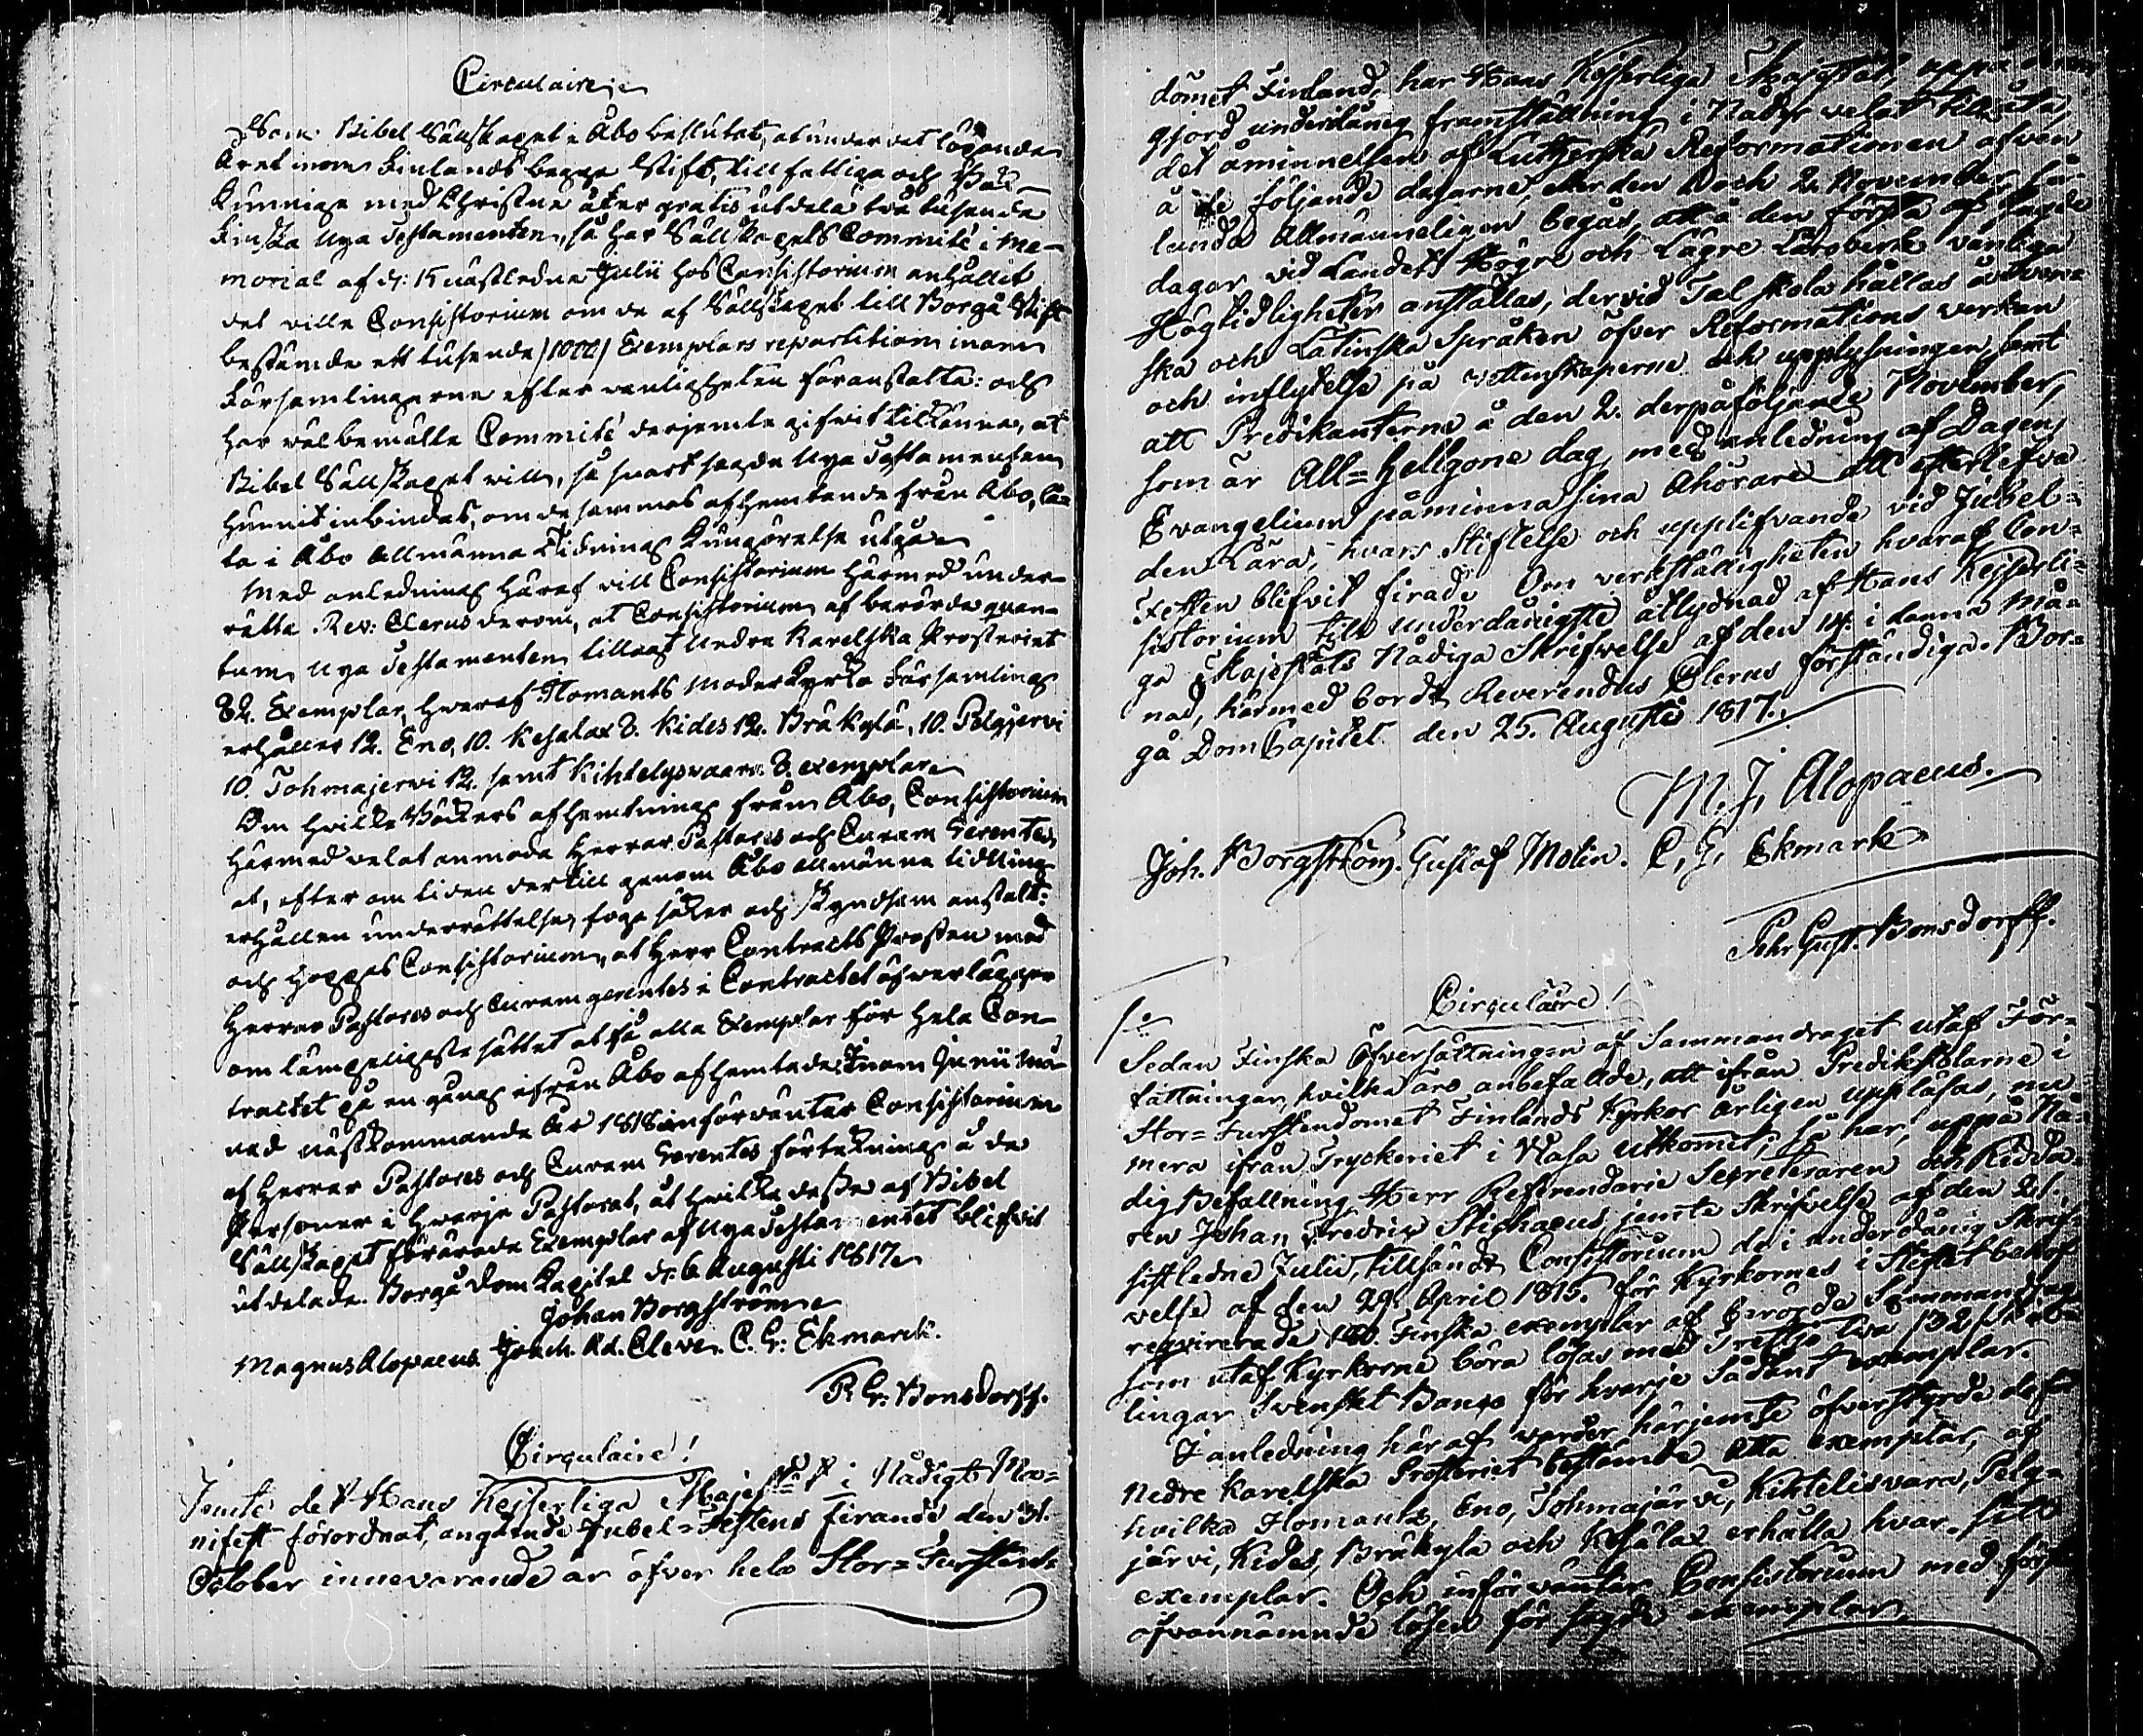 Circulaire
Som Bibel Sällskapet i Åbo beslutat, at under det löpande
Året inom Finlands begge Stift, till fattiga och Bok-
kunnige med Christne åter gratis utdela två tusende
Finska Nya Testamenten, så har Sällskapets Committé i Me-
morial af d: 1 nästledne Julii hos Consistorium anhållit
det ville Consistorium om de af Sällskapet till Borgå Stift
bestämde ett tusende /1000/ Exemplars repartition inom
Församlingarne efter vanligheten föranstalta: och
har välbemälte Committé derjemte gifvit tillkänna, at
Bibel Sällskapet vill, så snart sagde Nya Testamenten
hunnit inbindas, om de sammas afhemtande från Åbo, lå-
ta i Åbo Allmänna Tidning Kungörelse utgå.
Med anledning häraf vill Consistorium härmed under-
rätta Rev: Clerus derom, at Consistorium af berörde quan-
tum Nya Testamenten tillagt Nedre Karelska Prosteriet
82. Exemplar, hvaraf Ilomants Moderkyrko Församling
erhåller 12. Eno, 10. Kesalax 8. Kides 12. Bräkylä, 10. Pelgjervi
10. Tohmajervi 12. samt Kihtelysvaara 8. exemplar.
Om hvilka Böckers afhemtning från Åbo, Consistorium
härmed velat anmoda Herrar Pastores och Curam Gerentes
at, efter om tiden dertill genom Åbo allmänna tidning
erhållen underrättelse, foga säker och skyndsam anstalt:
och hoppas Consistorium, at Herr Contracts Prosten med
Herrar Pastores och Curam gerentes i Contractet öfverlägger
om lämpeligaste sättet at få alla Exemplar för hela Con-
tractet på en gång ifrån Åbo afhemtade. Inom Junii Må-
nad nästkommande År 1818 införväntar Consistorium
af Herrar Pastores och Curam Gerentes förtekning å de
Personer i hvarje Pastorat, åt hvilka desse af Bibel
Sällskapet förärade Exemplar af Nya Testamentet blifvit
utdelade. Borgå Dom Capitel d: 6 Augusti 1817.
Johan Borgström
Magnus Alopaeus. Joach. Ad. Cleve. C. G: Ekmarck.
P. G: Bonsdorff.
Cirqulaire!
Jemte det Hans Kejserliga Majestät i Nådigt Ma-
nifest förordnat, angående Jubel-Festens firande den 31.
October innevarande år öfver hela Stor-Fursten-
dömet Finland, har Hans Kejserliga Majestät, uppå derom
gjord underdånig framställning i Nåder velat tillåta,
det åminnelsen af Lutherska Reformationen äfven
å de följande dagarne, eller den 1 och 2. November, så-
lunda Allmänneligen begås, att å den första af sagde
dagar vid Landets Högre och Lägre Läroverk vanliga
Högtidligheter anställas, dervid Tal skola hållas å Sven-
ska och Latinska Språken öfver Reformations verkan
och inflytelse på vettenskaperne och upplysningen, samt
att Predikanterne å den 2. derpåföljande November,
som är All=Helgone dag, med anledning af Dagens
Evangelium påminna sina Åhörare att efterlefva
den Lära, hvars Stiftelse och upplifvande vid Jubel=
Festen blifvit firade. Om verkställigheten hvaraf Con=
sistorium till underdånigste åtlydnad af Hans Kejserli=
ga Majestäts Nådiga Skrifwelse af den 14 i denna Må=
nad, härmed bordt Reverendus Clerus förständiga. Bor=
gå Dom Capitel den 25. Augusti 1817.
M. J. Alopaeus.
Joh. Borgström. Gustaf Molin. C. G. Ekmark
Pehr Gust. Bonsdorff.
Cirquläire!
Sedan Finska Öfversättningen af Sammandraget utaf För=
fattningar, hvilka äro anbefallde, att ifrån Predikstolarne i
Stor=Furstendömet Finlands Kyrkor årligen uppläsas, nu
mera ifrån Tryckeriet i Wasa utkommit, så har, uppå Nå=
dig Befallning, Herr Referendarie Secreteraren och Ridda=
ren Johan Fredric Stichaeus jemte Skrifvelse af den 21.
sistledne Julii, tillsändt Consistorium de i underdånig Skrif=
velse af den 29. April 1815. för Kyrkornes i Stiftet behof
reqvirerade 180. Finska exemplar af berörde Sammandrag
som utaf Kyrkorne böra lösas med Trettio två /32/ Skil=
lingar Svenskt Banco för hvarje Sådant exemplar.
I anledning häraf varder härjemte öfverstyrde de för
Nedre Karelska Prosteriet bestämde Åtta exemplar, af
hvilka Ilomants, Eno, Tohmajärvi, Kihtelisvara, Pelg=
järvi, Kides, Bräkylä och Kesälax erhålla hvar sitt
exemplar. Och införväntar Consistorium med först
ofvannämnde lösen för sagde exemplar.